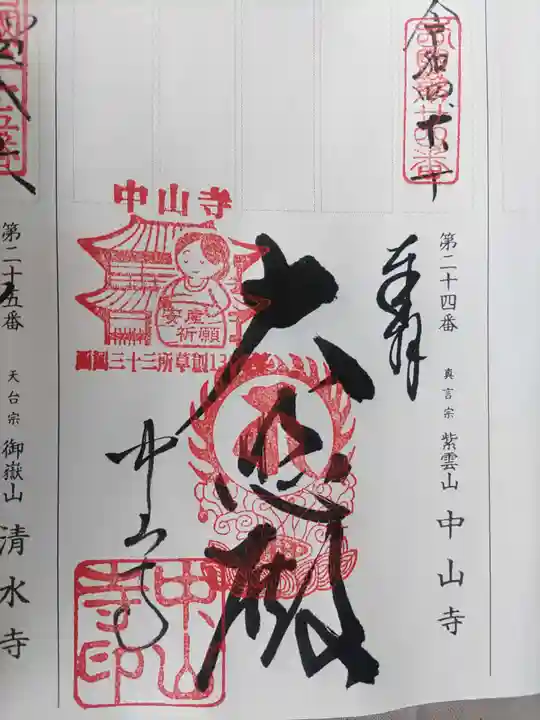 令和四、六、十
奉拝
第二十四番 真言宗 紫雲山 中山寺
大悲殿
中山寺
安産
祈願
西国三十三所草創13
中山寺
中山寺印
第二十五番 天台宗 御嶽山 清水寺